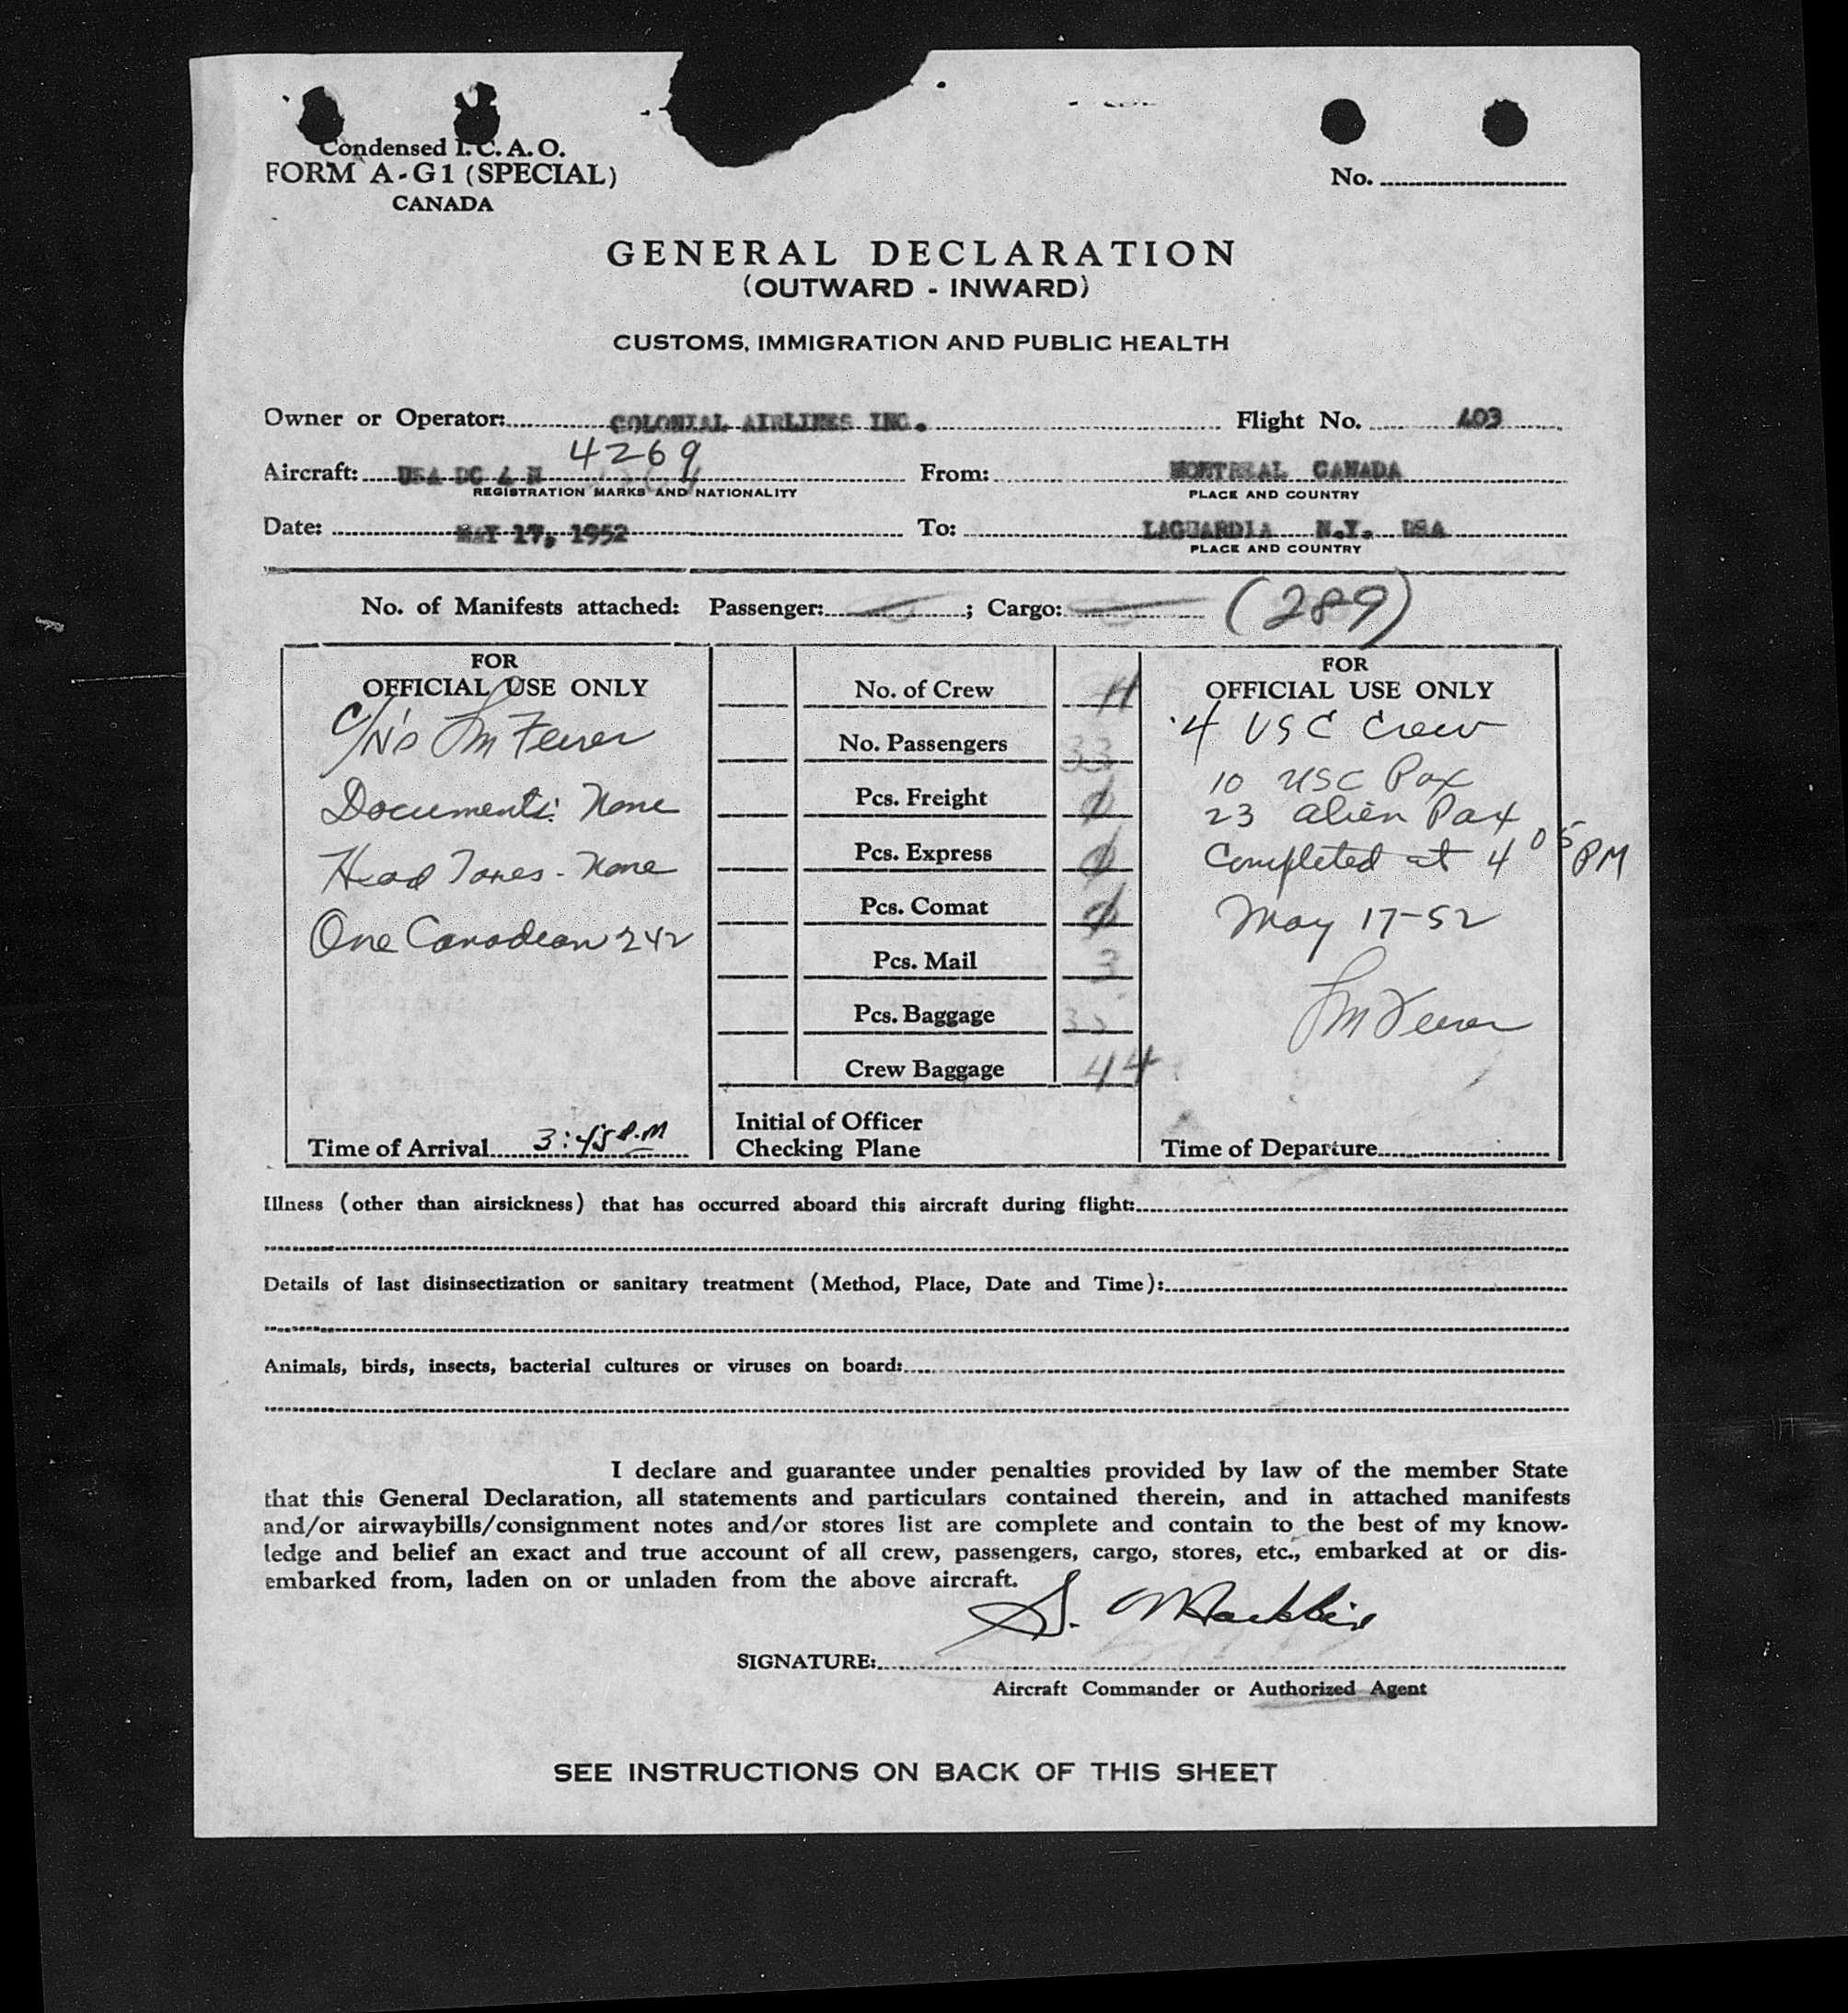 Condensed I. C. A. O.
FORM A-G1 (SPECIAL)
CANADA
No.
GENERAL DECLARATION
(OUTWARD - INWARD)
CUSTOMS, IMMIGRATION AND PUBLIC HEALTH
Owner or Operator: COLONIAL AIRLINES INC. Flight No. 403
4269
Aircraft: USA DC 4 N From: MONTREAL CANADA
REGISTRATION MARKS AND NATIONALITY PLACE AND COUNTRY
Date: MAY 17, 1952 To: LAGUARDIA N.Y. USA
PLACE AND COUNTRY
No. of Manifests attached: Passenger: ; Cargo: (289)
FOR
OFFICIAL USE ONLY
Documents: None
Head Taxes - None
One Canadian 242
Time of Arrival 3:45 P.M
No. of Crew 4
No. Passengers 33
Pcs. Freight 0
Pcs. Express 0
Pcs. Comat 0
Pcs. Mail 3
Pcs. Baggage
Crew Baggage 44
Initial of Officer
Checking Plane
FOR
OFFICIAL USE ONLY
4 USC Crew
10 USC Pax
23 alien Pax
Completed at 4 05 PM
May 17-52
Time of Departure
Illness (other than airsickness) that has occurred aboard this aircraft during flight:
Details of last disinsectization or sanitary treatment (Method, Place, Date and Time):
Animals, birds, insects, bacterial cultures or viruses on board:
I declare and guarantee under penalties provided by law of the member State
that this General Declaration, all statements and particulars contained therein, and in attached manifests
and/or airwaybills/consignment notes and/or stores list are complete and contain to the best of my know-
ledge and belief an exact and true account of all crew, passengers, cargo, stores, etc., embarked at or dis-
embarked from, laden on or unladen from the above aircraft.
S.
SIGNATURE:
Aircraft Commander or Authorized Agent
SEE INSTRUCTIONS ON BACK OF THIS SHEET